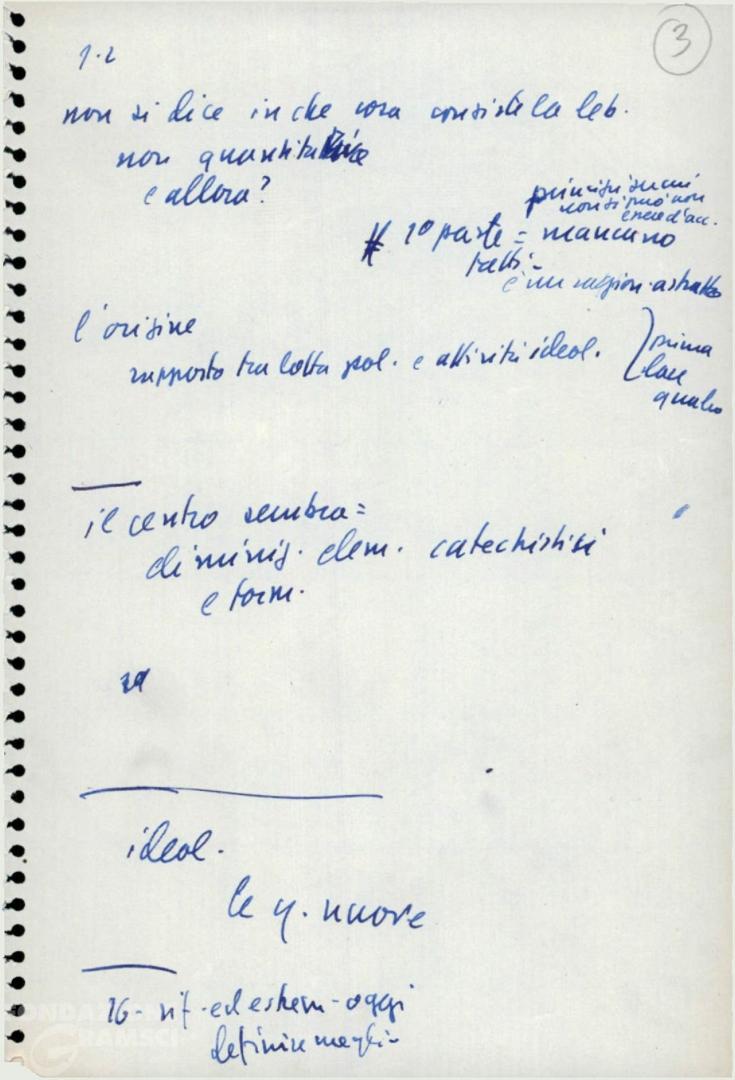 3
1-2
non si dice in che cosa consiste la deb.
non quantitativa
e allora?
non si può non
essere d'acc.
1º parte = mancano
fatti -
è un ragion. astratto
l'origine
rapporto tra lotta pol. e attività ideol.
prima
dare
quadro
il centro sembra =
elem. catechistici
e form.
ideol.
le q. nuove
16- rif. ed estrem - oggi
definire meglio
FONDAZIONE
GRAMSCI